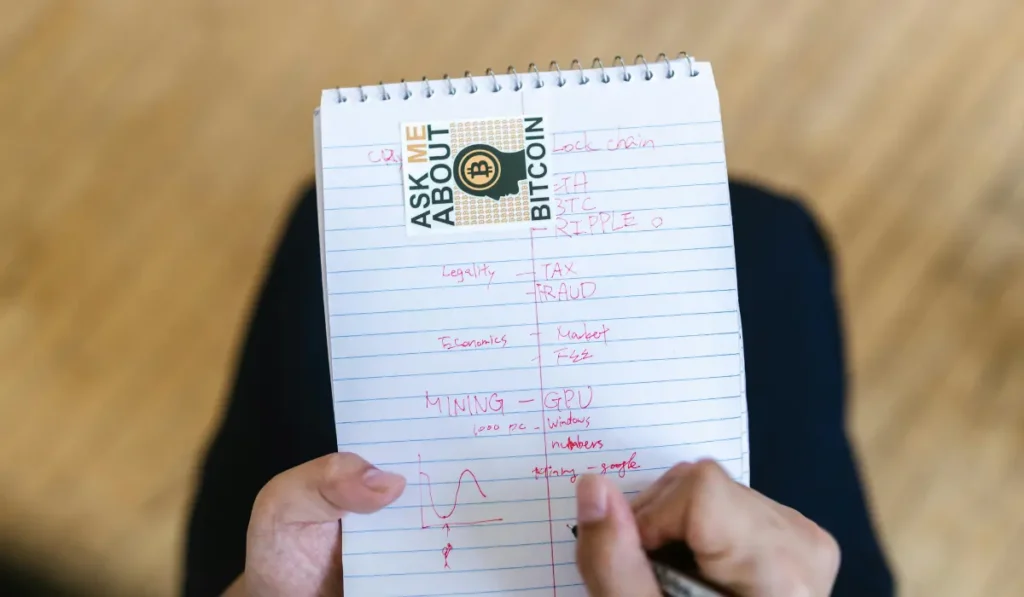 ASK ME
ABOUT
BITCOIN
lock chain
ETH
BTC
RIPPLE
Legality - TAX
- FRAUD
Economics - Market
- Fee
MINING - GPU
1000 pc - Windows
numbers
- google